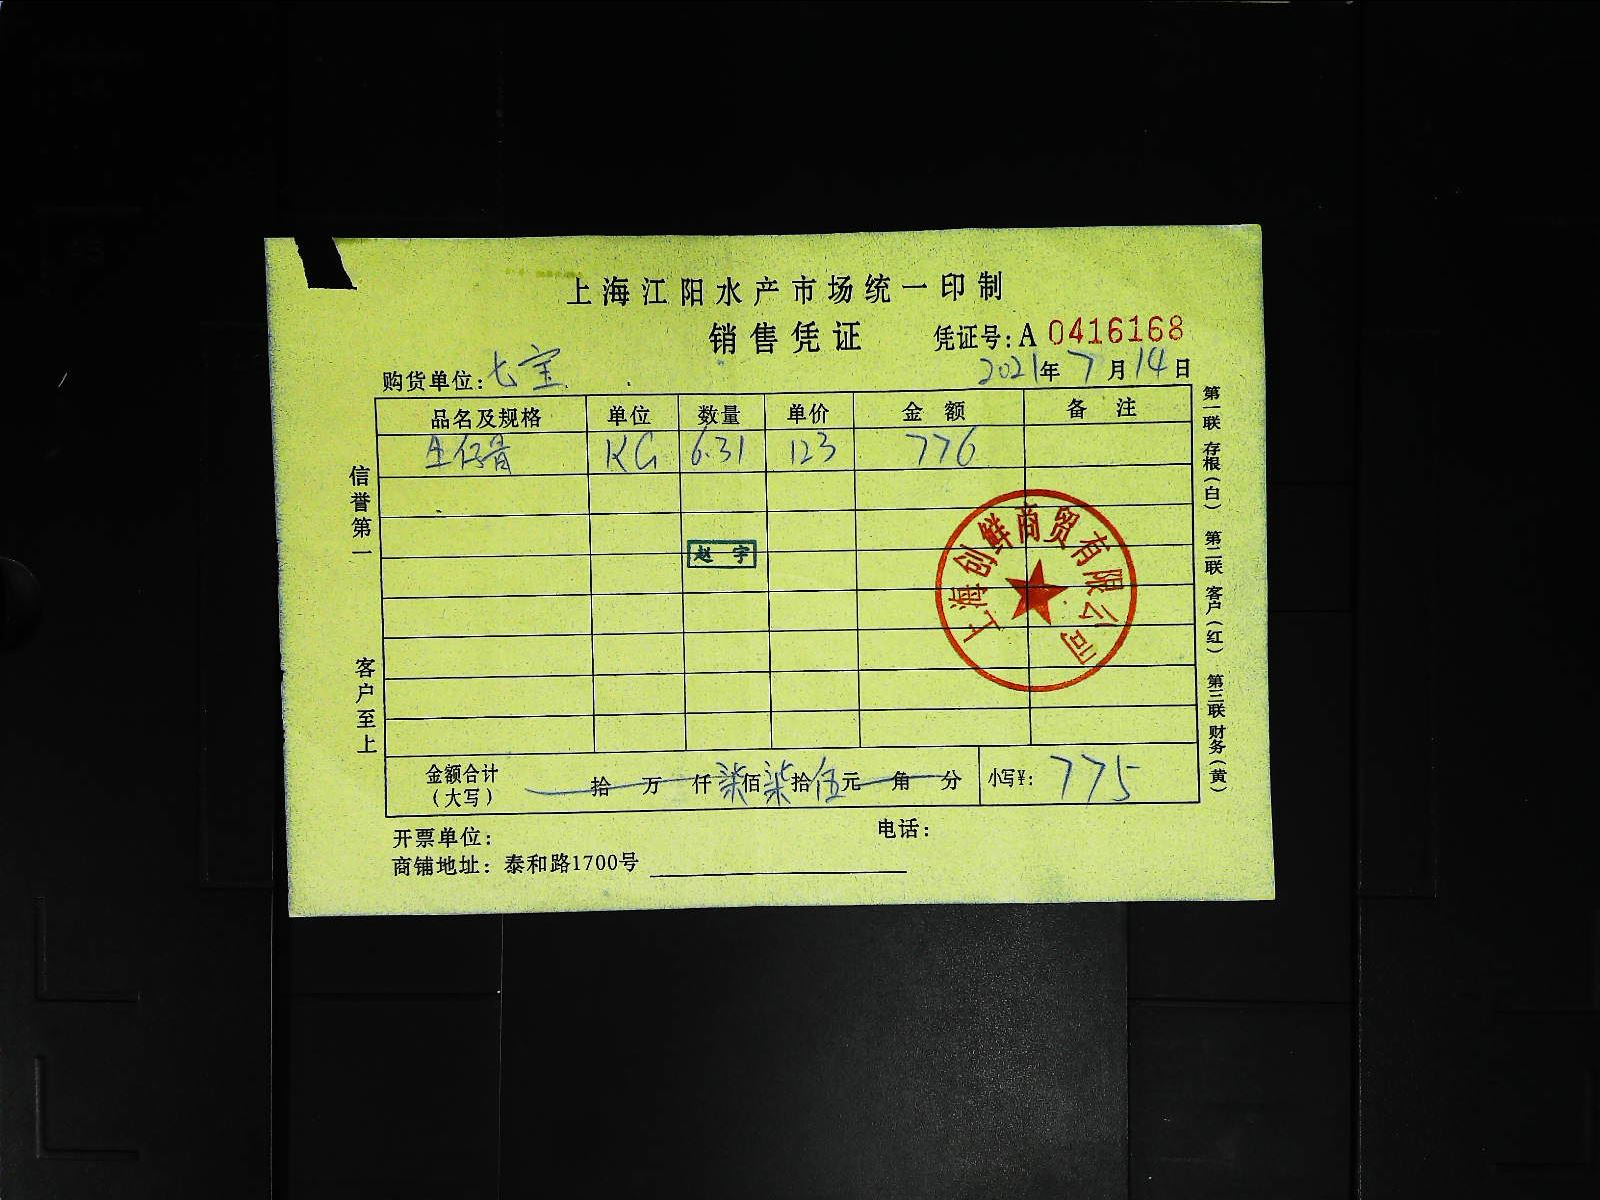 上海江阳水产市场统一印制
销售凭证 凭证号:A 0416168
购货单位:七宝 2021年7月14日
品名及规格 单位 数量 单价 金额 备注
仔骨 KG 6.31 123 776
赵宇
上海创鲜商贸有限公司
金额合计(大写) 拾 万 仟 柒佰柒拾伍元 角 分 小写¥: 775
开票单位: 电话:
商铺地址: 泰和路1700号
信誉第一
客户至上
第一联 存根(白) 第二联 客户(红) 第三联 财务(黄)